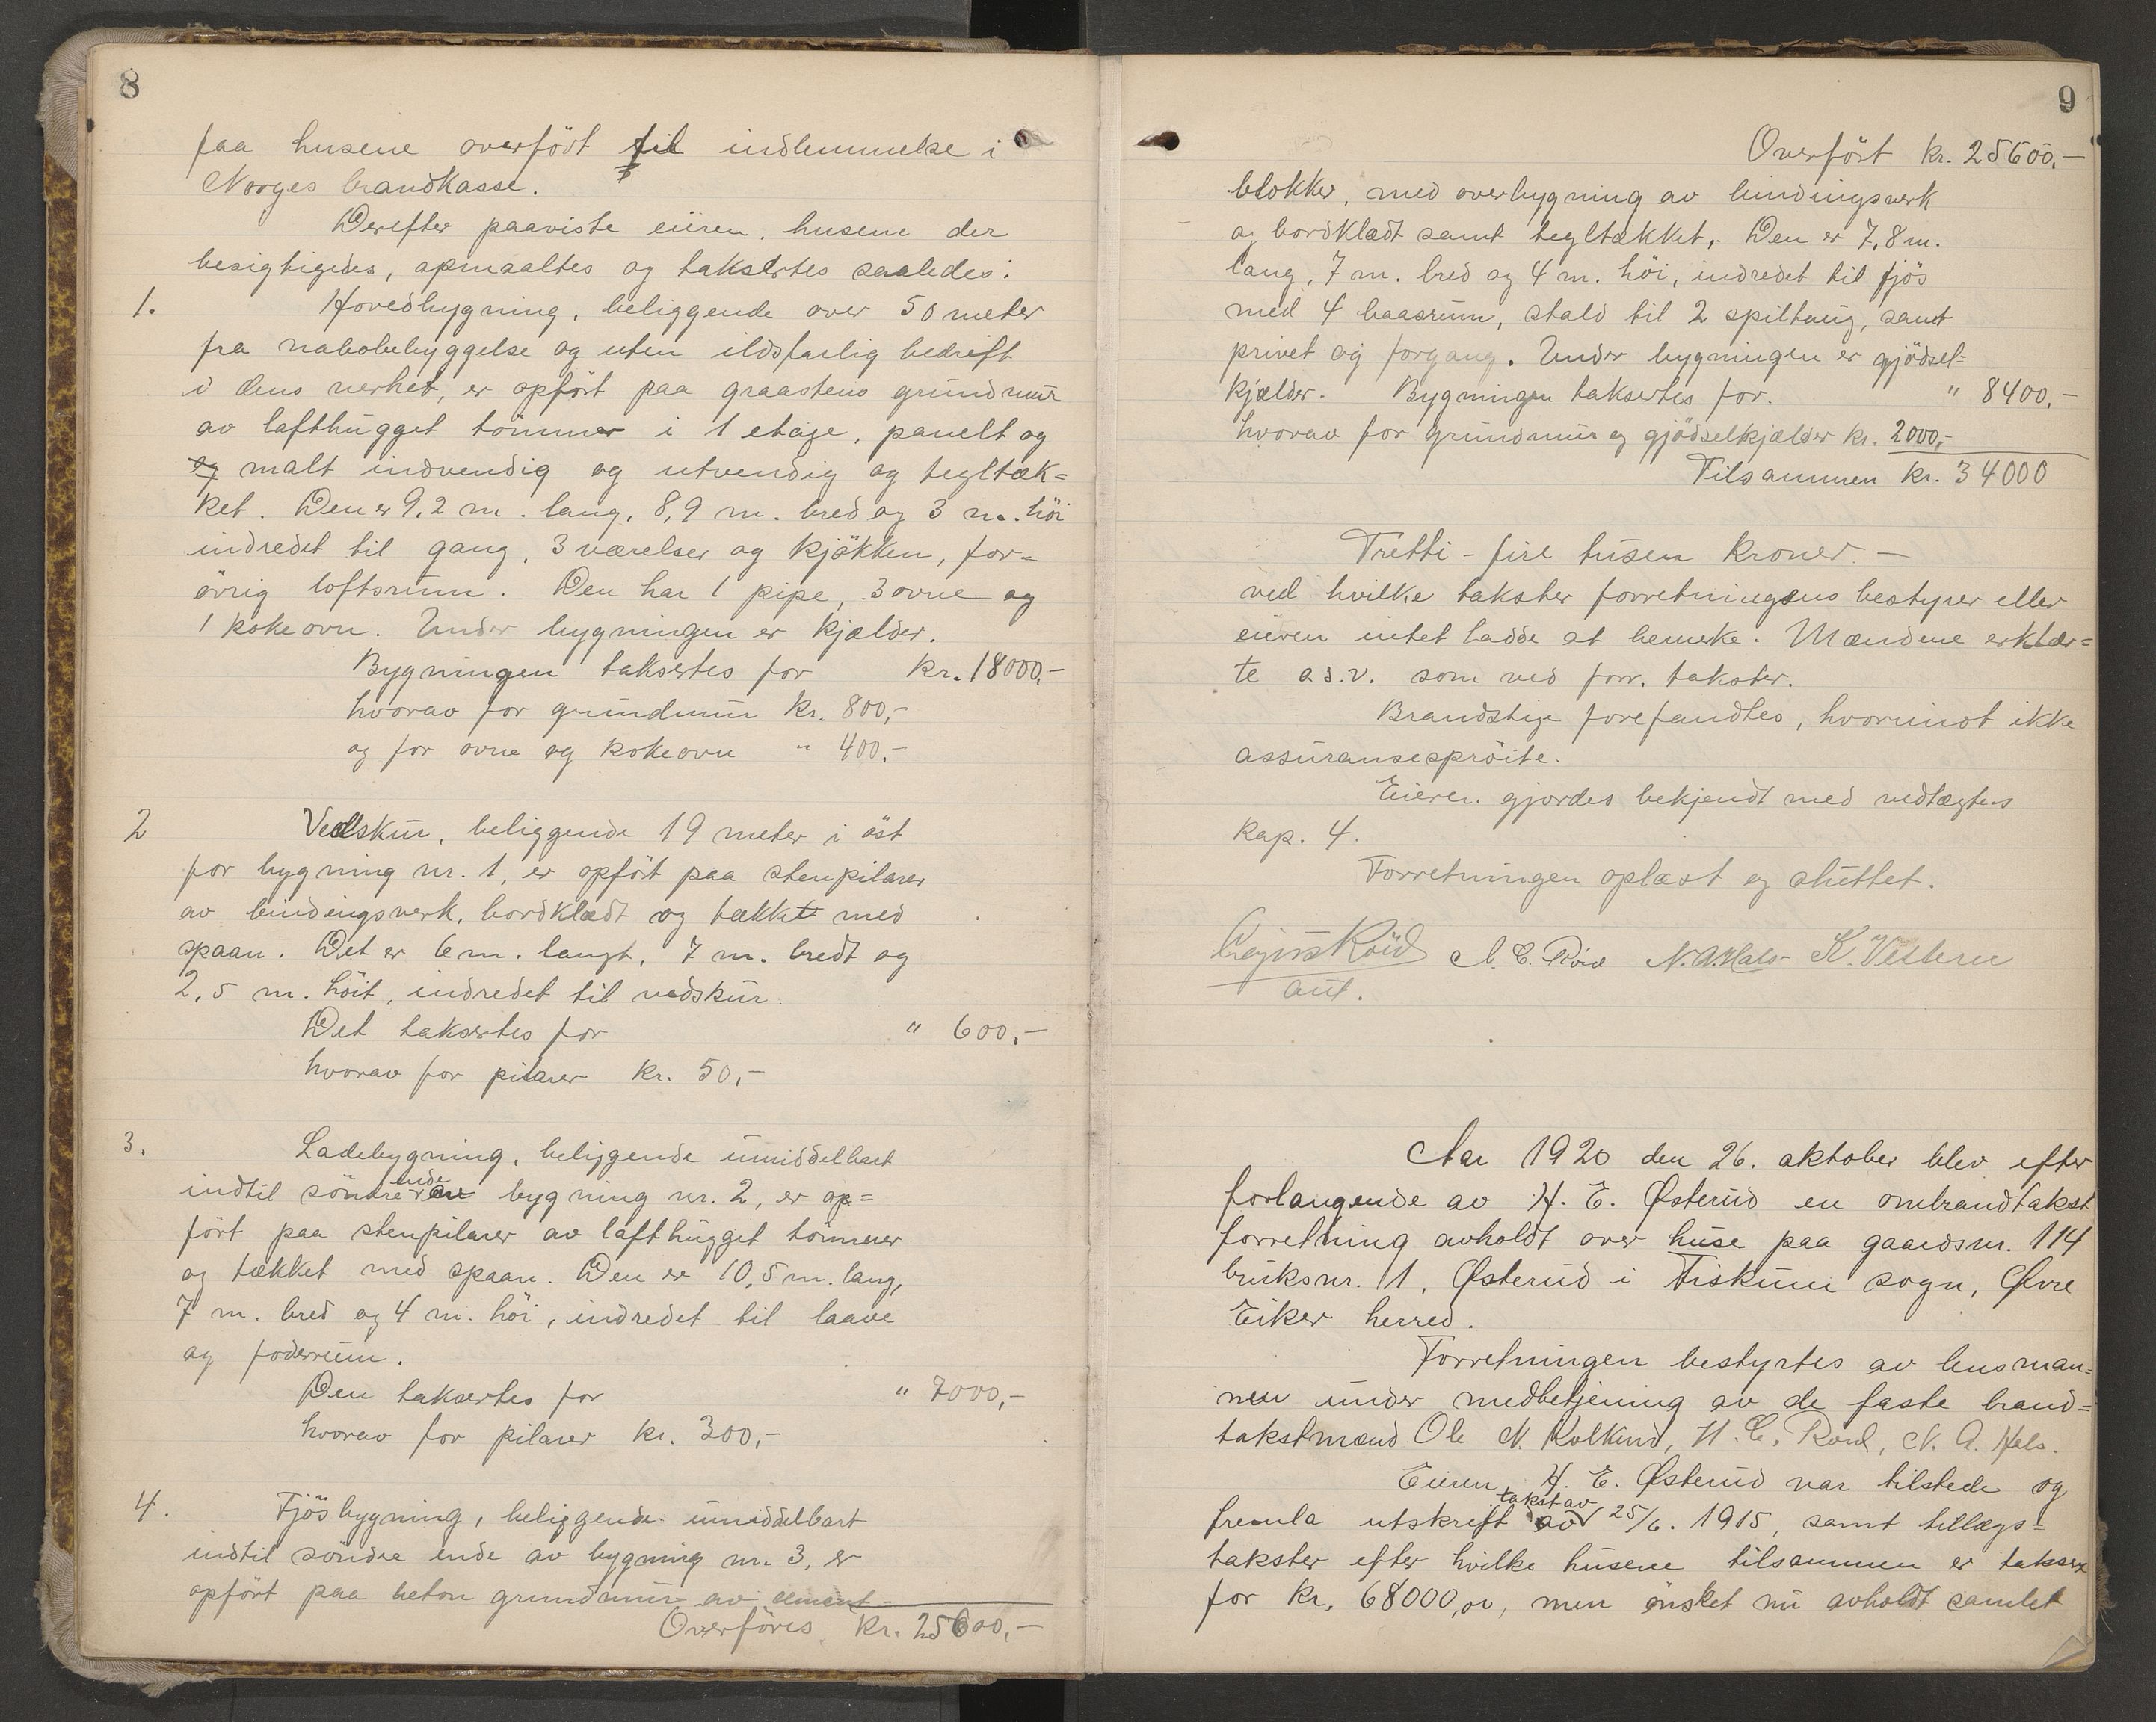 8
paa husene overfört til indlemmelse i
Norges brandkasse.
Derefter paaviste eieren husene der
besigtigedes, opmaaltes og taksertes saaledes:
1. Hovedbygning, beliggende over 50 meter
fra nabobebyggelse og uten ildsfarlig bedrift
i dens nerhet, er opfört paa graastens grundmur
av lafthugget tömmer i 1 etage, panelt og
og malt indvendig og utvendig og tegltæk=
ket. Den er 9,2 m. lang, 8,9 m. bred og 3 m. höi
indredet til gang, 3 værelser og kjökken, for-
övrig loftsrum. Den har 1 pipe, 3 ovne og
1 kokeovn. Under bygningen er kjælder.
Bygningen taksertes for kr. 18000,-
hvorav for grundmur kr. 800,-
og for ovne og kokeovn " 400,-
2 Vedskur, beliggende 19 meter i öst
for bygning nr. 1, er opfört paa stenpilarer
av bindingsverk, bordklædt og tækket med
spaan. Det er 6 m. langt, 7 m. bredt og
2,5 m. höit, indredet til vedskur.
Det taksertes for " 600,-
hvorav for pilarer kr. 50,-
3. Ladebygning, beliggende umiddelbart
indtil söndre ende av bygning nr. 2, er op=
fört paa stenpilarer av lafthugget tömmer
og tækket med spaan. Den er 10,5 m. lang,
7 m. bred og 4 m. höi, indredet til laave
og foderrum.
Den taksertes for " 7000,-
hvorav for pilarer kr. 300,-
4. Fjösbygning, beliggende umiddelbart
indtil söndre ende av bygning nr. 3, er
opfört paa beton grundmur av cement-
Overföres kr. 25600,-
9
Overfört kr. 25600,-
blokker, med overbygning av bindingsverk
og bordklædt samt tegltækket. Den er 7,8 m.
lang, 7 m. bred og 4 m. höi, indredet til fjös
med 4 baasrum, stald til 2 spiltaug, samt
privet og forgang. Under bygningen er gjödsel=
kjælder. Bygningen taksertes for. " 8400,-
hvorav for grundmur og gjödselkjælder kr. 2000,-
Tilsammen kr. 34000
Tretti-fire tusen kroner.-
ved hvilke takster forretningens bestyrer eller
eieren intet hadde at bemerke. Mændene erklær=
te o.s.v. som ved forr. takster.
Brandstige forefandtes, hvorimot ikke
assuransespröite.
Eieren gjordes bekjendt med vedtægtens
kap. 4.
Forretningen oplæst og sluttet.
N. A. Hals K. Vestern
aut.
Aar 1920 den 26. oktober blev efter
forlangende av H. E. Østerud en ombrandtakst
forretning avholdt over huse paa gaardsnr. 114
bruksnr. 1, Østerud i Fiskum sogn, Øvre
Eiker herred.
Forretningen bestyrtes av lensman=
nen under medbetjening av de faste brand=
takstmænd Ole N. Kolkind, H. E. Röed, N. A. Hals.
Eieren H. E. Østerud var tilstede og
fremla utskrift takst av 25/6. 1915, samt tillægs=
takster efter hvilke husene tilsammen er taksert
for kr. 68000,00, men önsket nu avholdt samlet